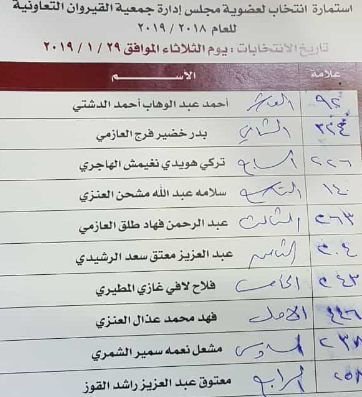 استمارة انتخاب لعضوية مجلس إدارة جمعية القيروان التعاونية
للعام ٢٠١٨ / ٢٠١٩
تاريخ الانتخابات : يوم الثلاثاء الموافق ٢٩ / ١ / ٢٠١٩
علامة الاســـم
٩٢ العاشر أحمد عبد الوهاب أحمد الدشتي
٣٢٤ الثاني بدر خضير فرج العازمي
٢٢٦ السابع تركي هويدي نغيمش الهاجري
١٤٠ التاسع سلامه عبد الله مشحن العنزي
٢٦٣ الثالث عبد الرحمن فهاد طلق العازمي
٢٠٤ الثامن عبد العزيز معتق سعد الرشيدي
٢٤٣ الخامس فلاح لافي غازي المطيري
٤٤٦ الأول فهد محمد عذال العنزي
٢٣٨ السادس مشعل نعمه سمير الشمري
٢٥٨ الرابع معتوق عبد العزيز راشد القوز